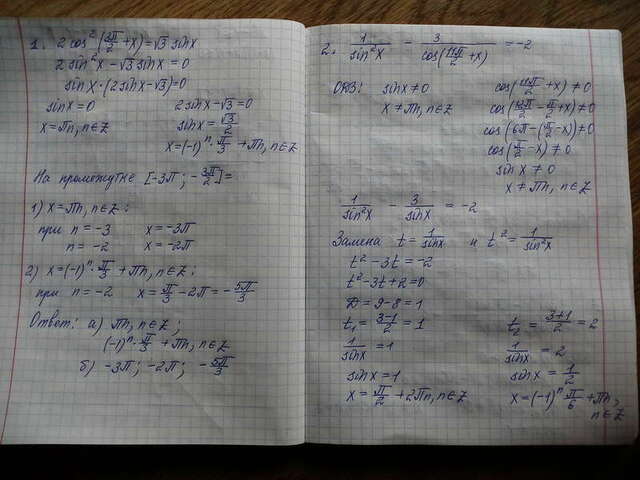 1. 2 cos² (3π/2 + x) = √3 sinx
2 sin²x - √3 sinx = 0
sinx · (2 sinx - √3) = 0
sinx = 0 2 sinx - √3 = 0
x = πn, n∈Z sinx = √3/2
x = (-1)ⁿ · π/3 + πn, n∈Z
На промежутке [-3π; -3π/2] =
1) x = πn, n∈Z:
при n = -3 x = -3π
n = -2 x = -2π
2) x = (-1)ⁿ · π/3 + πn, n∈Z:
при n = -2 x = π/3 - 2π = -5π/3
Ответ: а) πn, n∈Z;
(-1)ⁿ · π/3 + πn, n∈Z
б) -3π; -2π; -5π/3
2. 1/sin²x - 3/cos(11π/2 + x) = -2
ОВЗ: sinx ≠ 0 cos(11π/2 + x) ≠ 0
x ≠ πn, n∈Z cos(12π/2 - π/2 + x) ≠ 0
cos(6π - (π/2 - x)) ≠ 0
cos(π/2 - x) ≠ 0
sinx ≠ 0
x ≠ πn, n∈Z
1/sin²x - 3/sinx = -2
Замена t = 1/sinx и t² = 1/sin²x
t² - 3t = -2
t² - 3t + 2 = 0
D = 9 - 8 = 1
t₁ = 3-1/2 = 1 t₂ = 3+1/2 = 2
1/sinx = 1 1/sinx = 2
sinx = 1 sinx = 1/2
x = π/2 + 2πn, n∈Z x = (-1)ⁿ π/6 + πn,
n∈Z